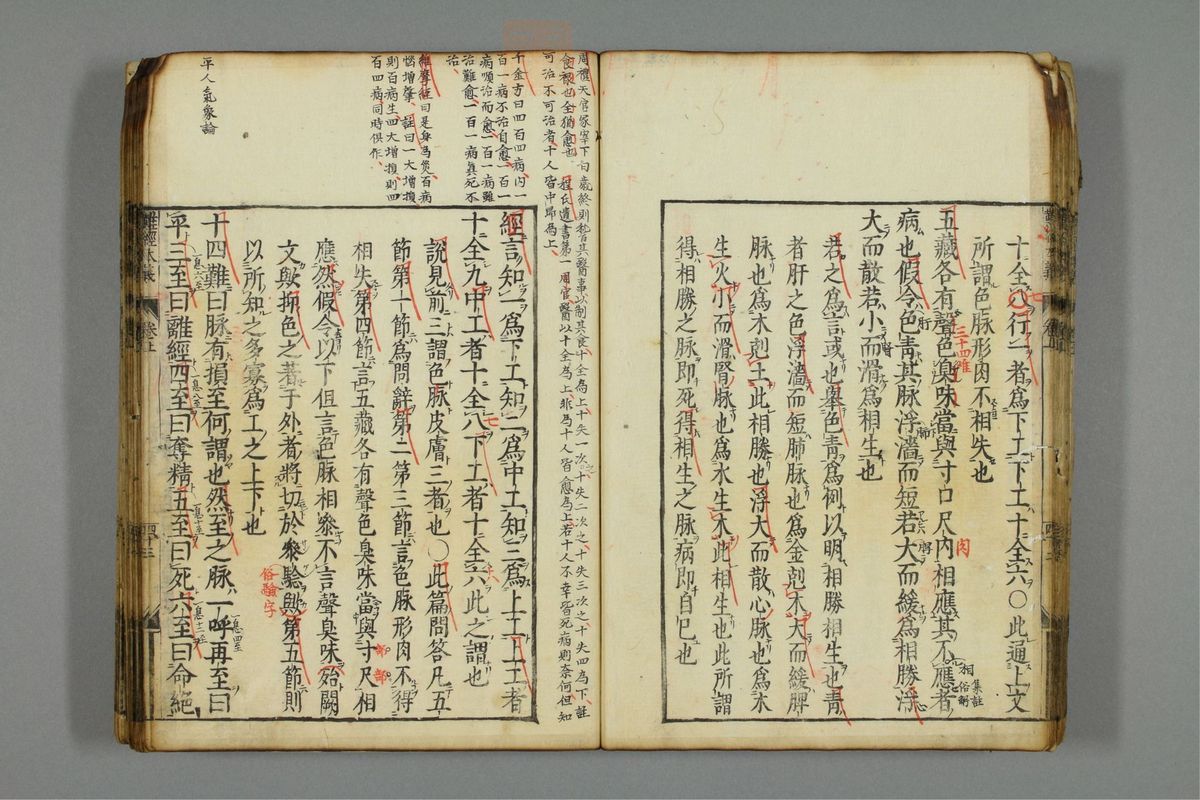 十全八行一者為下工下工十全六〇此通上文
所謂色脉形肉不相失也
五藏各有聲色臭味當與寸口尺內相應其不應者
病也假令色青其脉浮濇而短若大而緩為相勝浮
大而散若小而滑為相生也
若之為言或也與色青為例以明相勝相生也青
者肝之色浮濇而短肺脉也為金剋木大而緩脾
脉也為木剋土此相勝也浮大而散心脉也為木
生火小而滑腎脉也為水生木此相生也此所謂
得相勝之脉即死得相生之脉病即自已也
三十四難
肉
集註
相俗謂
周禮天官冢宰下曰歲終則稽其醫事以制其食十全為上十失一次之十失二次之十失三次之十失四為下註
食祿也全猶愈也
程氏遺書第一周官醫以十全為上非為十人皆愈為上若十人不幸皆死病則奈何但知
可治不可治者十人皆中即為上
千金方曰四百四病內一
百一病不治自愈一百一
病須治而愈一百一病雖
治難愈一百一病真死不
治
維摩經曰是身為災百病
惱增肇註曰一大增損
則百病生四大增損則四
百四病同時俱作
平人氣象論
經言知一為下工知二為中工知三為上工上工者
十全九中工者十全八下工者十全六此之謂也
說見前三謂色脉皮膚三者也〇此篇問答凡五
節第一節為問辭第二第三節言色脉形肉不得
相失第四節言五藏各有聲色臭味當與寸尺相
應然假令以下但言色脉相參不言聲臭味殆闕
文歟抑色之著于外者將切於參驗歟第五節則
以所知之多寡為工之上下也
十四難曰脉有損至何謂也然至之脉一呼再至曰
平三至曰離經四至曰奪精五至曰死六至曰命絕
七
俗驗字
難經本義
卷上
四十三